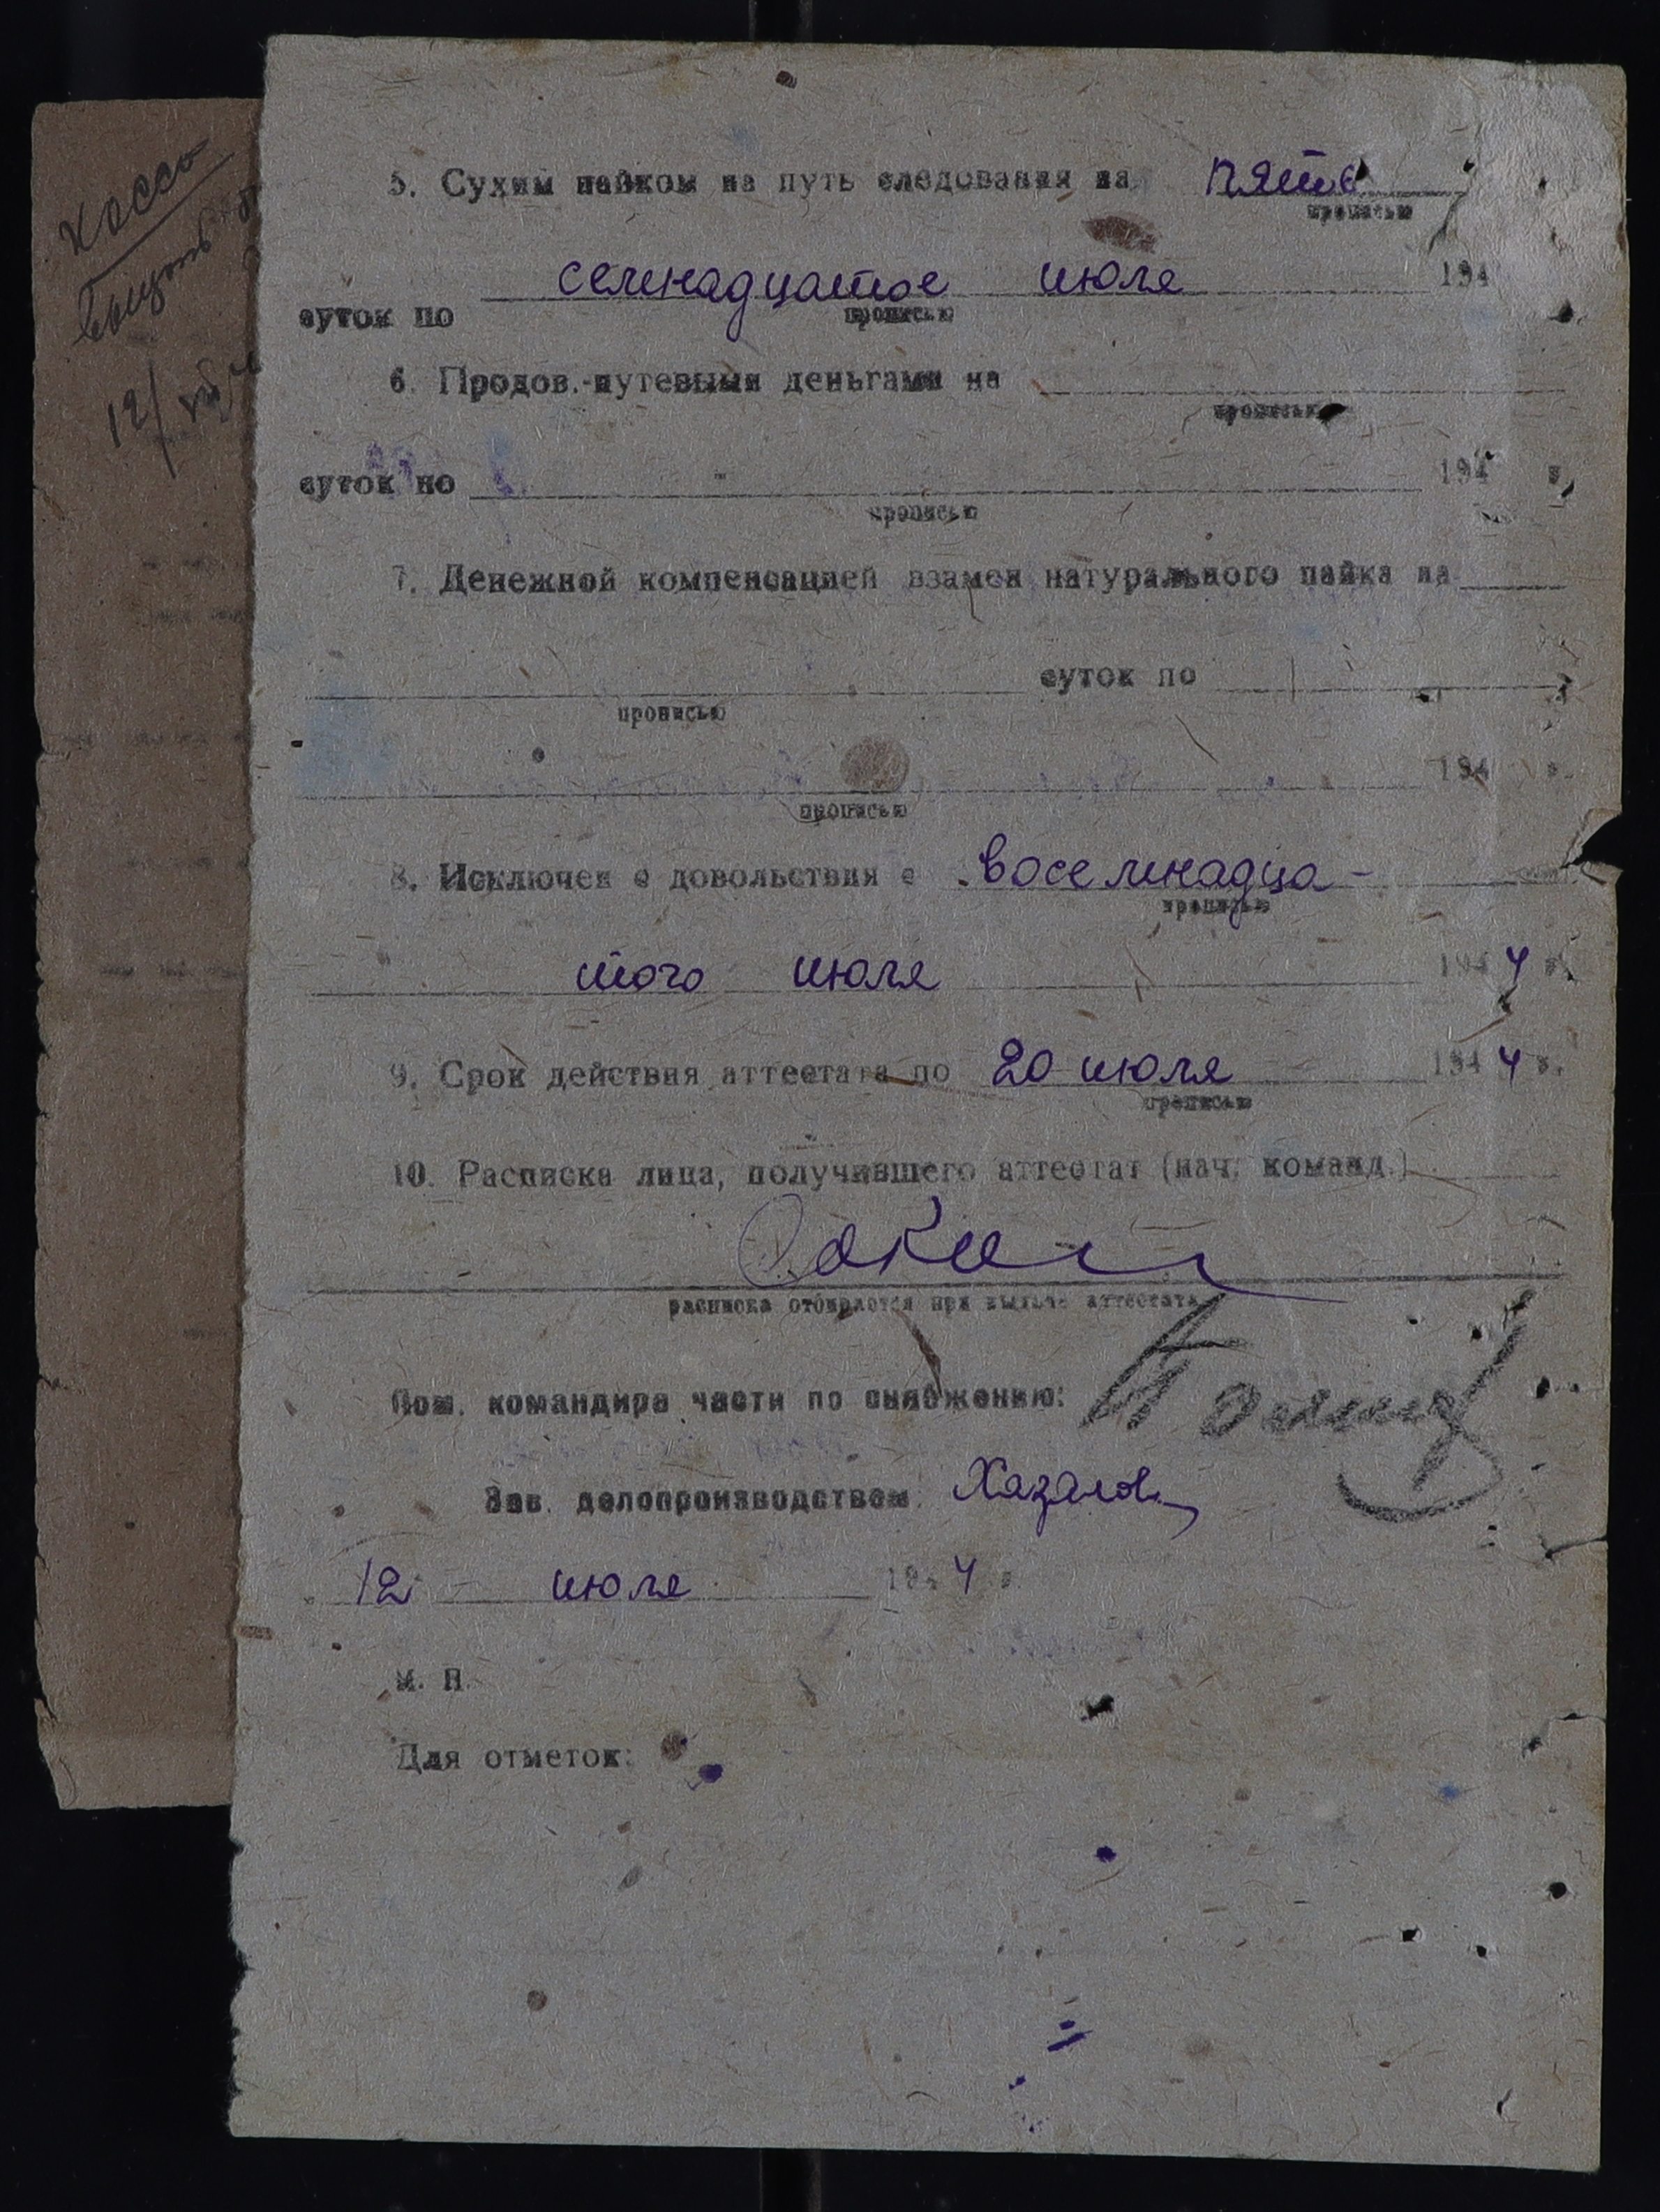 5. Сухим пайком на путь следования на пять
прописью
суток по семнадцатое июля 194
прописью
6. Продов.-путевыми деньгами на
прописью
суток по 194 г.
прописью
7. Денежной компенсацией взамен натурального пайка на
суток по
прописью
194 г.
прописью
8. Исключен с довольствия с восемнадца-
прописью
того июля 1944 г.
9. Срок действия аттестата по 20 июля 1944 г.
прописью
10. Расписка лица, получившего аттестат (нач. команд.)
расписка отбирается при выдаче аттестата
Пом. командира части по снабжению:
Зав. делопроизводством:
12 июля 1944 г.
М. П.
Для отметок:
12/